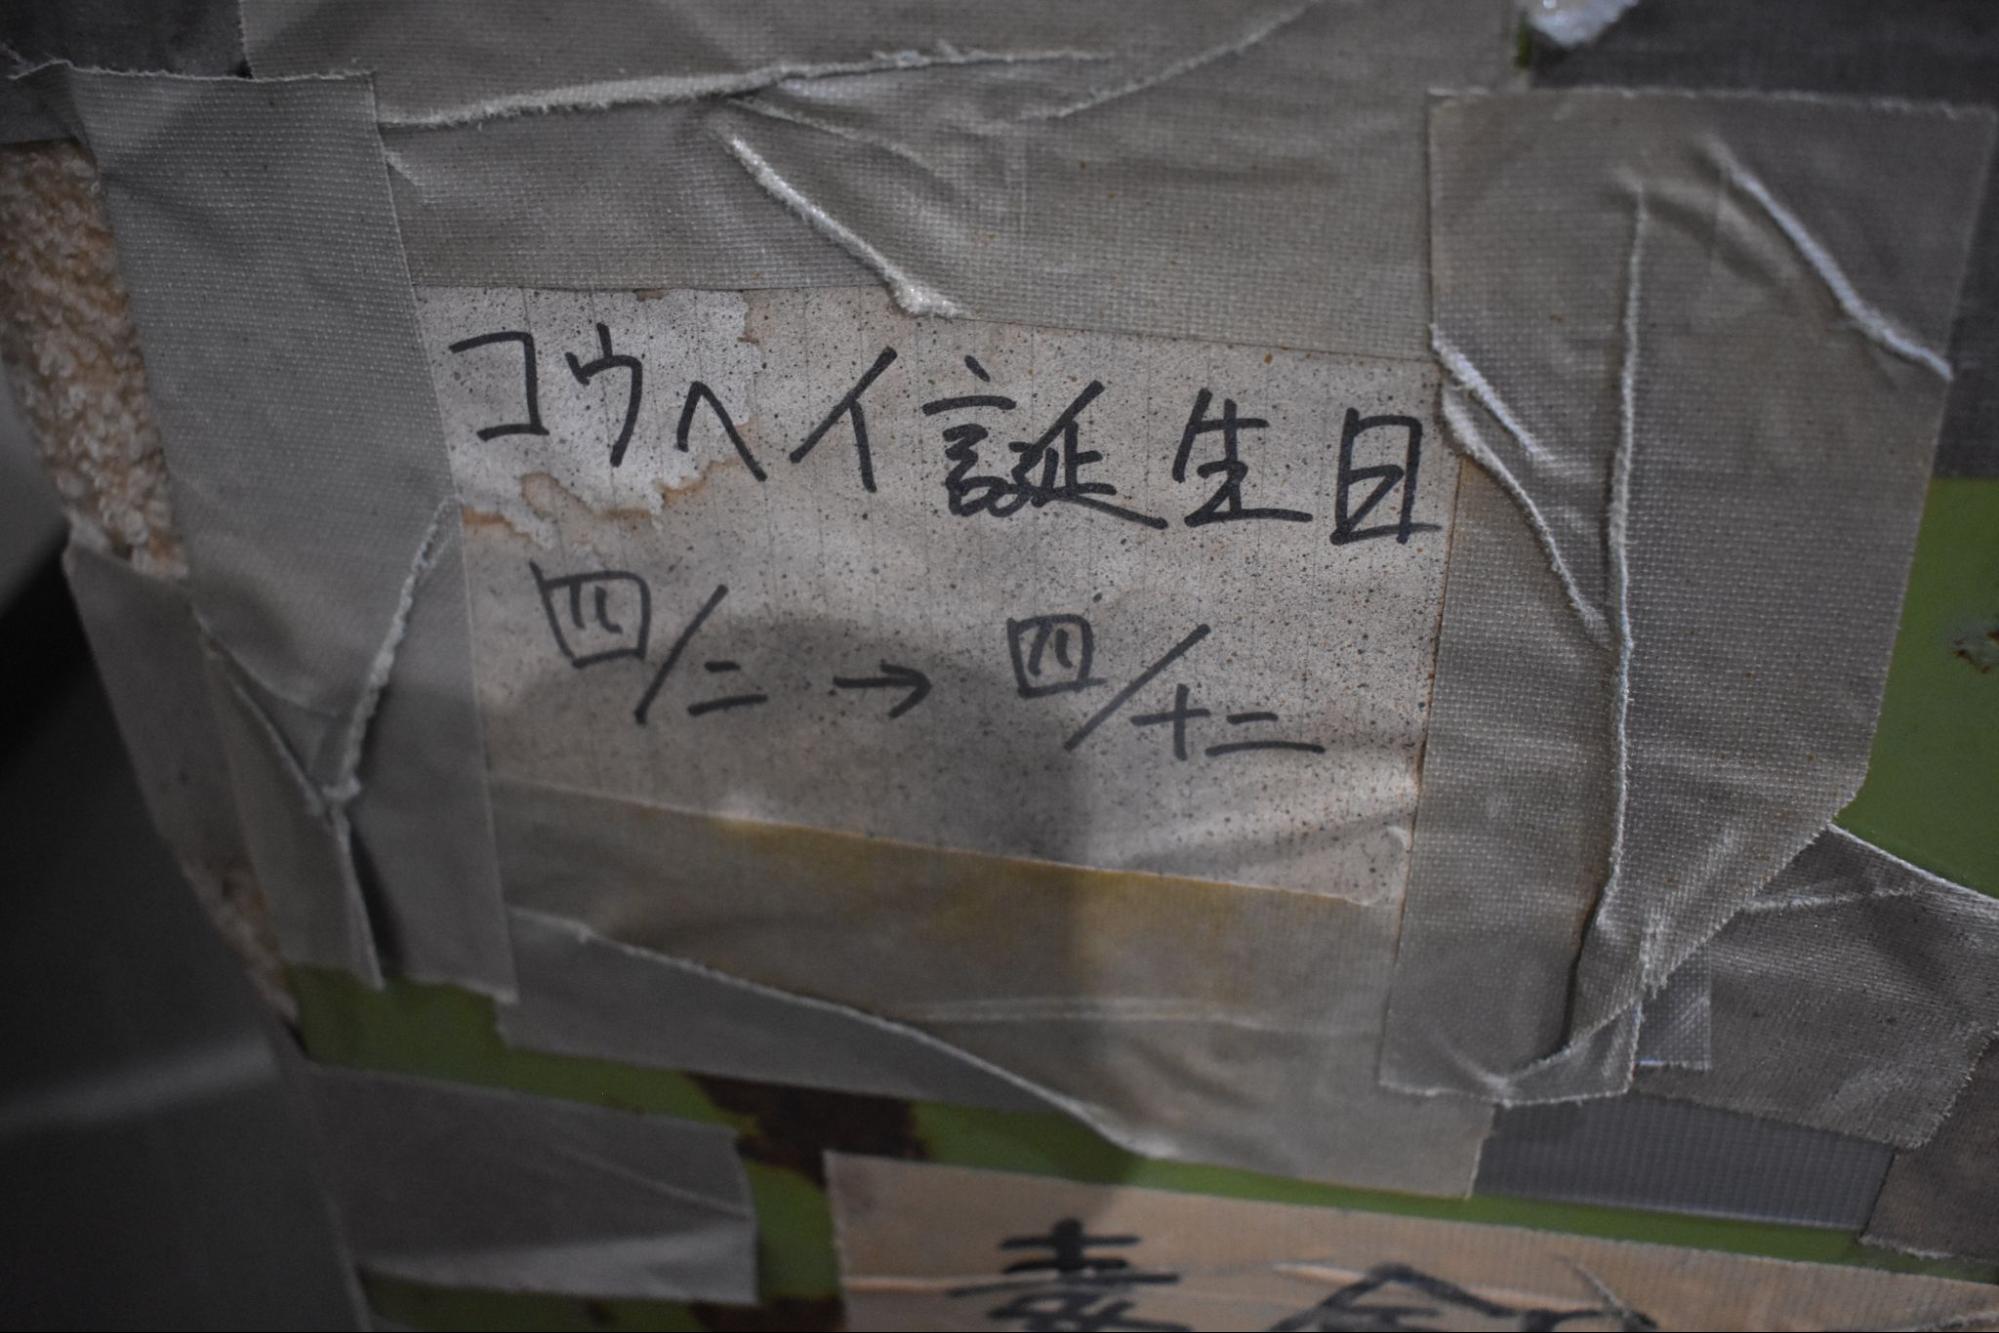 コウヘイ誕生日
四/二→四/十二